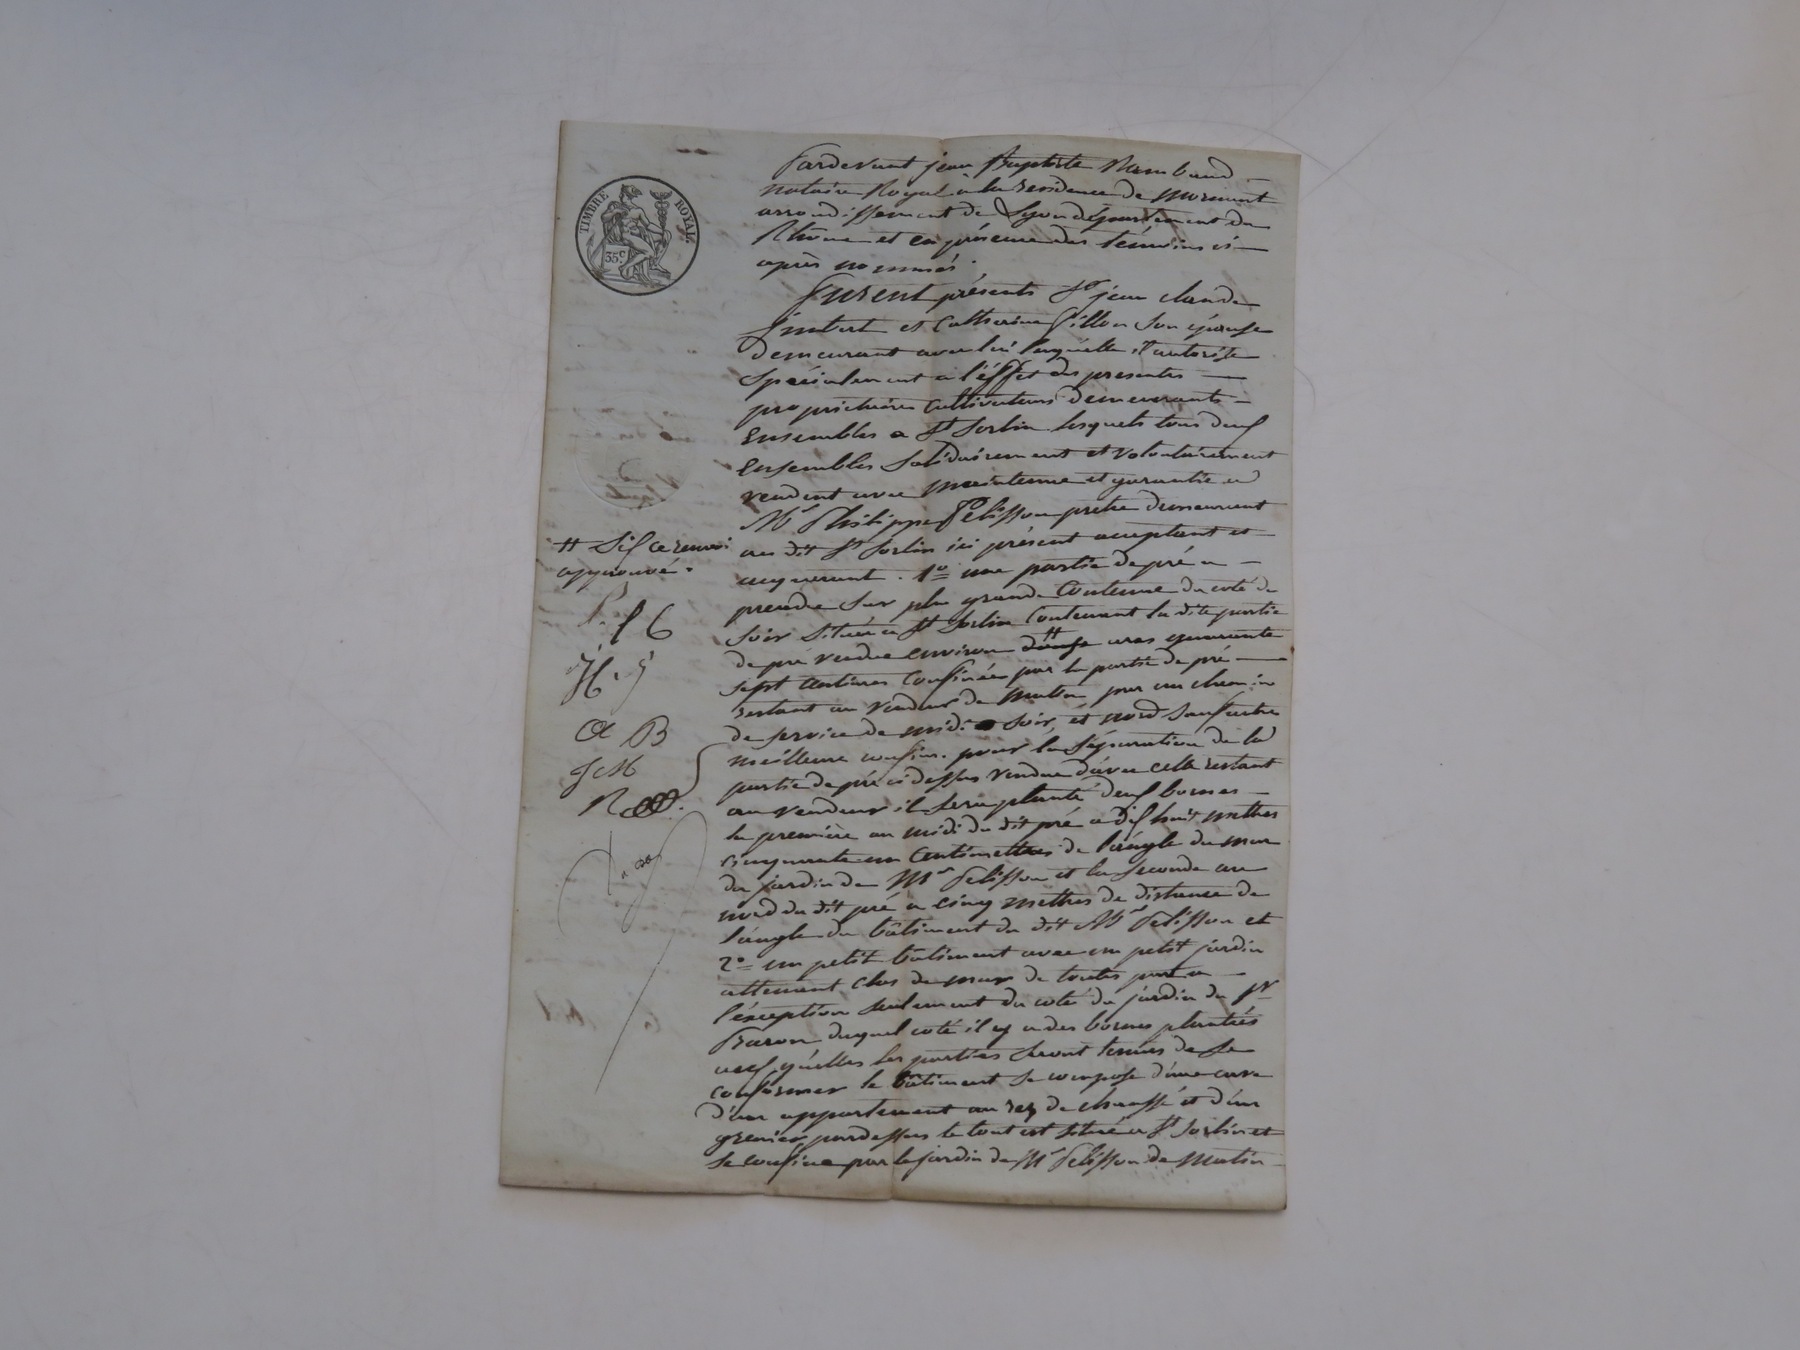 TIMBRE ROYAL
35 c.
Pardevant jean Baptiste Rambaud
notaire Royal a la residence de mornant
arrondissement de Lyon département du
Rhône et en présence des témoins ci
après nommés
Furent présents Sr jean claude
imbert et Catherine Pillon son épouse
demeurant avec lui laquelle il autorise
spécialement a l'éffet des presentes
propriétaires Cultivateurs demeurants
Ensembles a St Sorlin lesquels tous deux
Ensembles Solidairement et volontairement
vendent avec maintenue et garantie a
Mr Philippe Pelisson pretre demeurant
au dit St Sorlin ici présent acceptant et
acquerant. 1o une partie de pré a
prendre sur plus grande Contenue du coté de
soir Située a St Sorlin Contenant la dite partie
de pré vendue environ # ares quarante
sept centiares Confinée par la partie de pré
restant au vendeur de matin par un chemin
de service de midi soir, et nord sauf autres
meilleurs confins. pour la séparation de la
partie de pré ci dessus vendue d'avec celle restant
au vendeur il sera planté deux bornes
la première au midi du dit pré a dix huit mettres
cinquante un Centimettres de l'angle du mur
du jardin de Mr Pelisson et la seconde au
nord du dit pré a cinq mettres de distance de
l'angle du bâtiment du dit Mr Pelisson et
2o un petit batiment avec un petit jardin
attenant clos de mur de toutes part a
l'éxception seulement du coté du jardin du Sr
Baron duquel coté il y a des bornes plantées
auxquelles les parties seront tenues de se
conformer le bâtiment se compose d'une cave
d'un appartement au rez de chaussé et d'un
grenier pardessus le tout est situé a St Sorlin et
se confine par le jardin de Mr Pelisson de matin
# Six ce renvoi
approuvé.
P. C
B
JCM
R